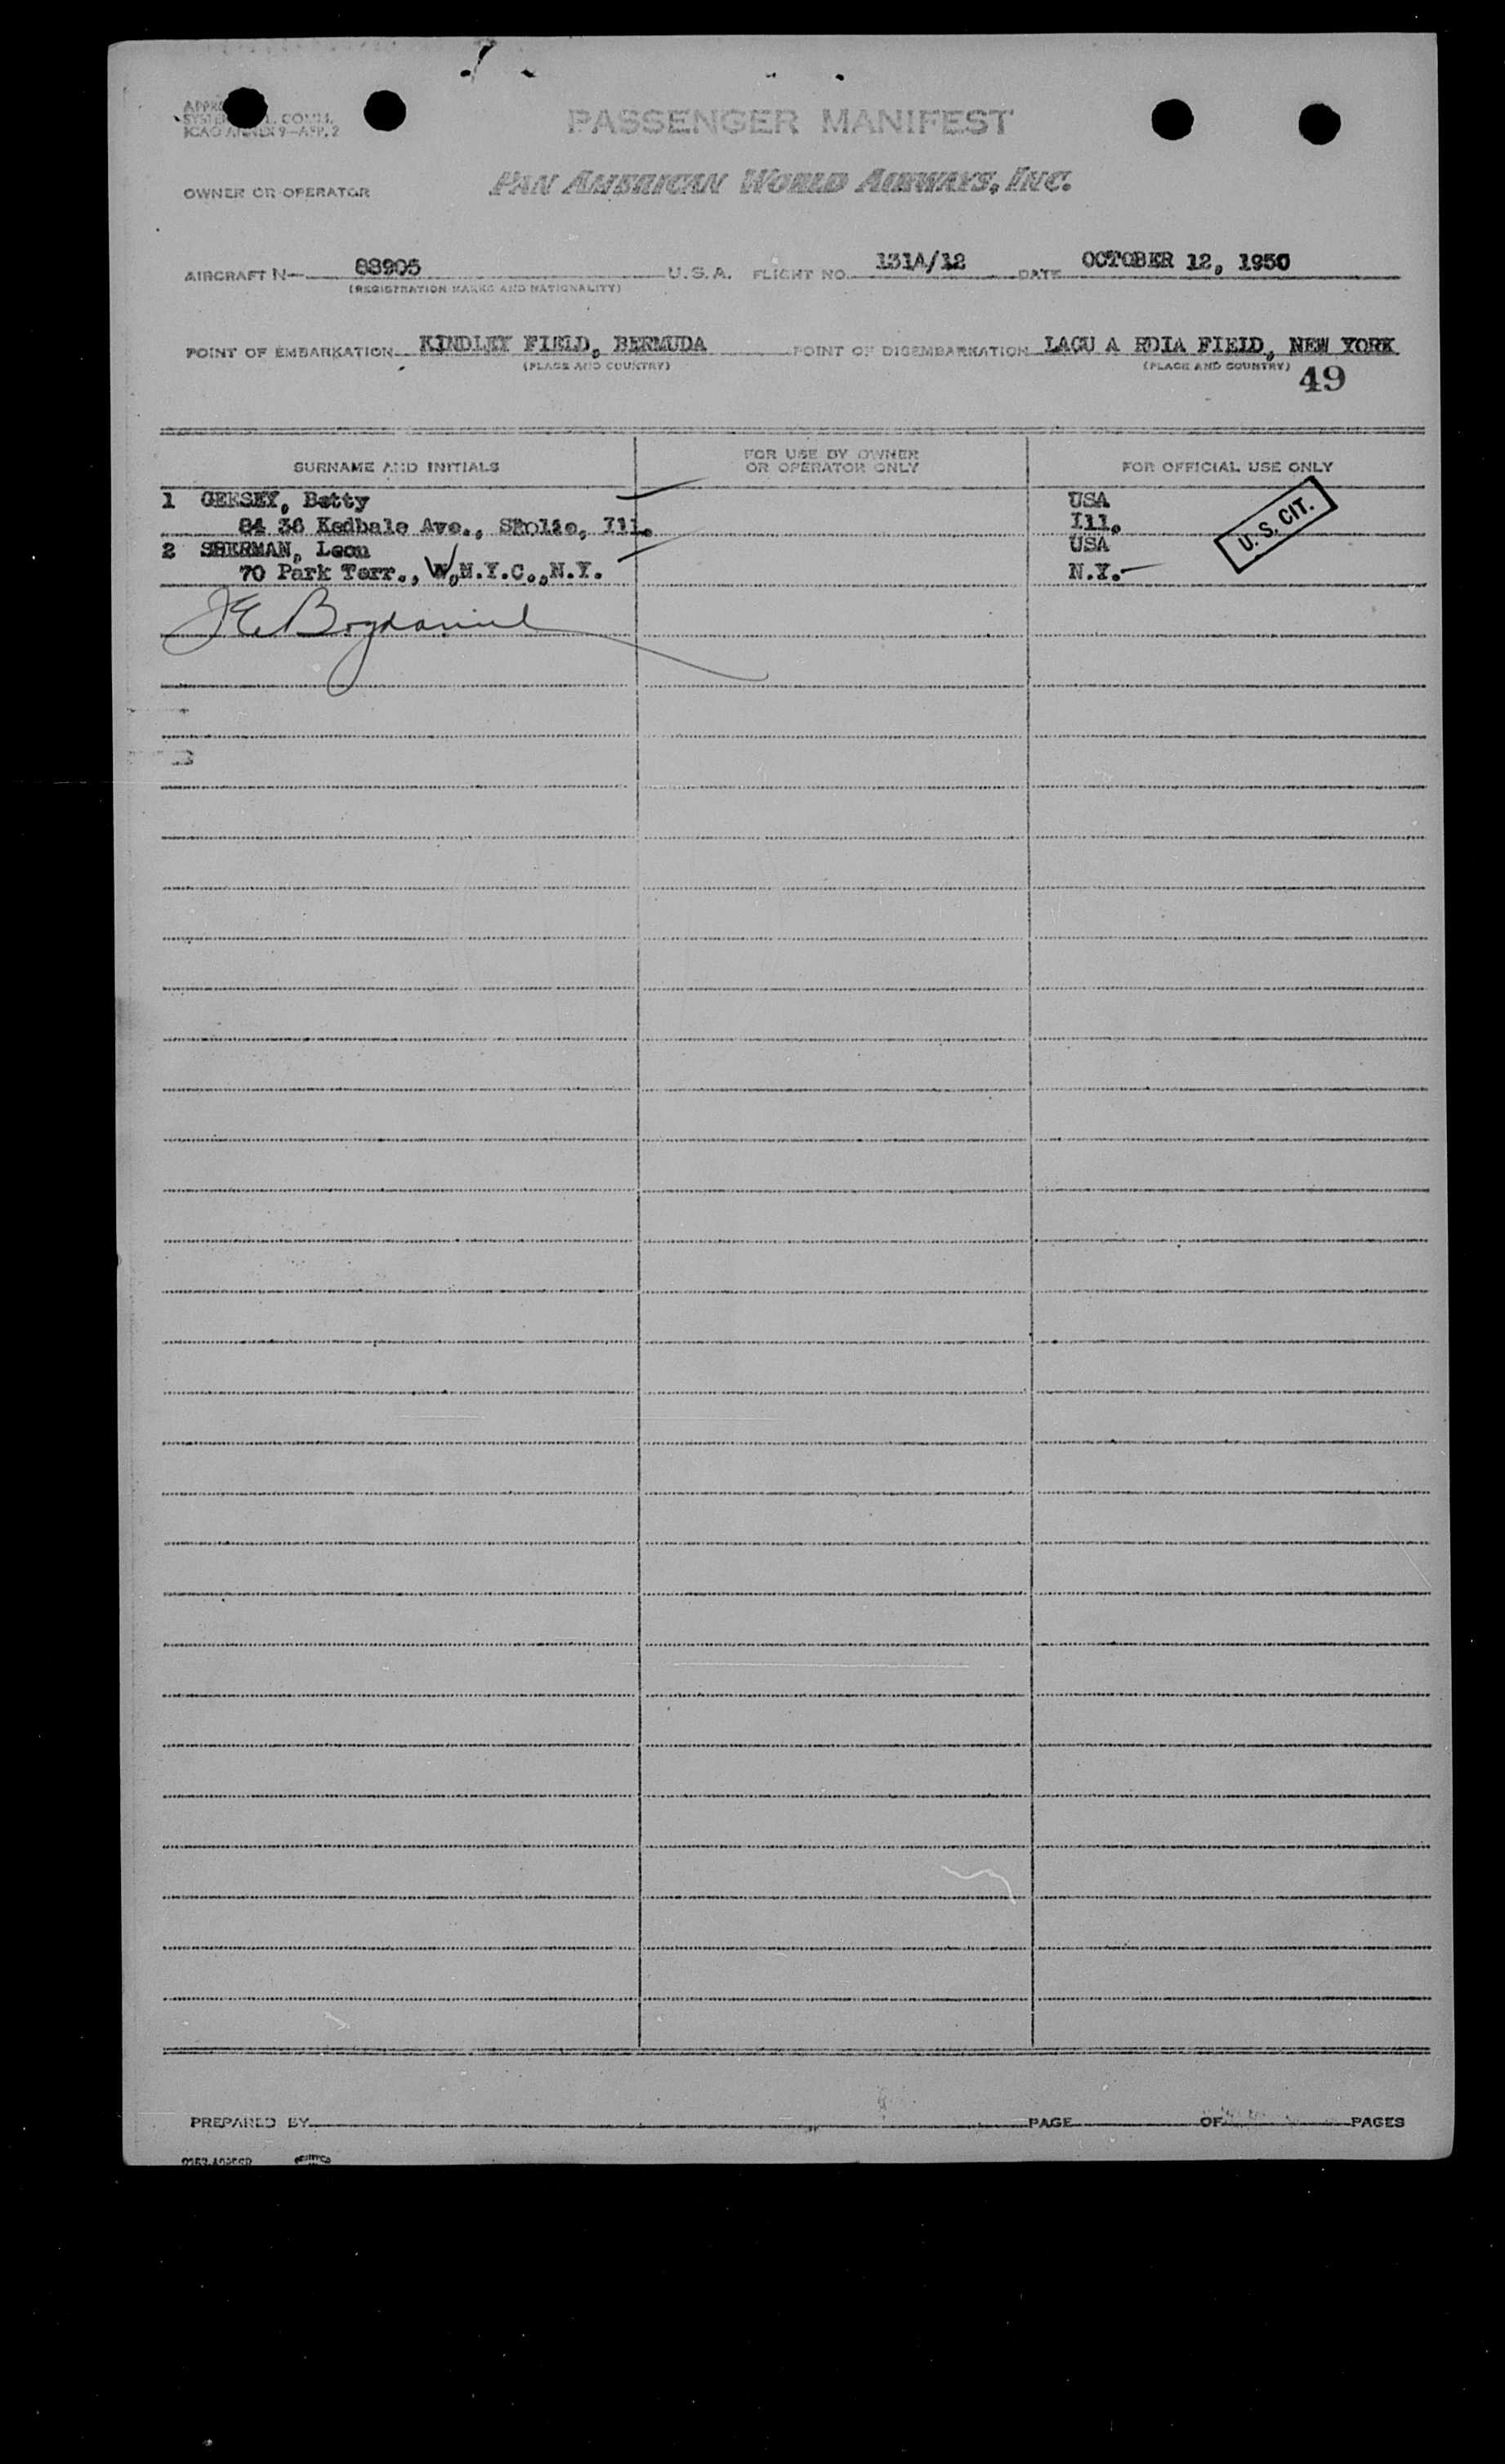 PASSENGER MANIFEST
ICAO ANNEX 9—APP. 2
PAN AMERICAN WORLD AIRWAYS, INC.
OWNER OR OPERATOR
AIRCRAFT N— 88905 U.S.A. FLIGHT NO. 131A/12 DATE OCTOBER 12, 1950
(REGISTRATION MARKS AND NATIONALITY)
POINT OF EMBARKATION KINDLEY FIELD, BERMUDA POINT OF DISEMBARKATION LAGU A RDIA FIELD, NEW YORK
(PLACE AND COUNTRY) (PLACE AND COUNTRY)
49
SURNAME AND INITIALS FOR USE BY OWNER OR OPERATOR ONLY FOR OFFICIAL USE ONLY
1 Betty USA
84 36 Kedbale Ave., Ill. Ill.
2 SHERMAN, Leon USA
70 Park Terr., W,N.Y.C.,N.Y. N.Y.
U. S. CIT.
PREPARED BY PAGE OF PAGES